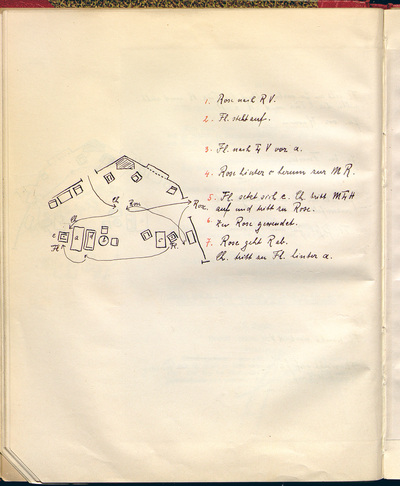 1. Rose nach R V.
2. Fl. steht auf.
3. Fl. nach V vor a.
4. Rose hinter herum zur M R.
5. Fl. setzt sich c. Ch. tritt M H
auf und tritt zu Rose.
6. Zur Rose gewendet.
7. Rose geht R ab.
Ch. tritt zu Fl. hinter a.
Ch. Rose Rose
Ch.
c a d e
Fl. Fl.